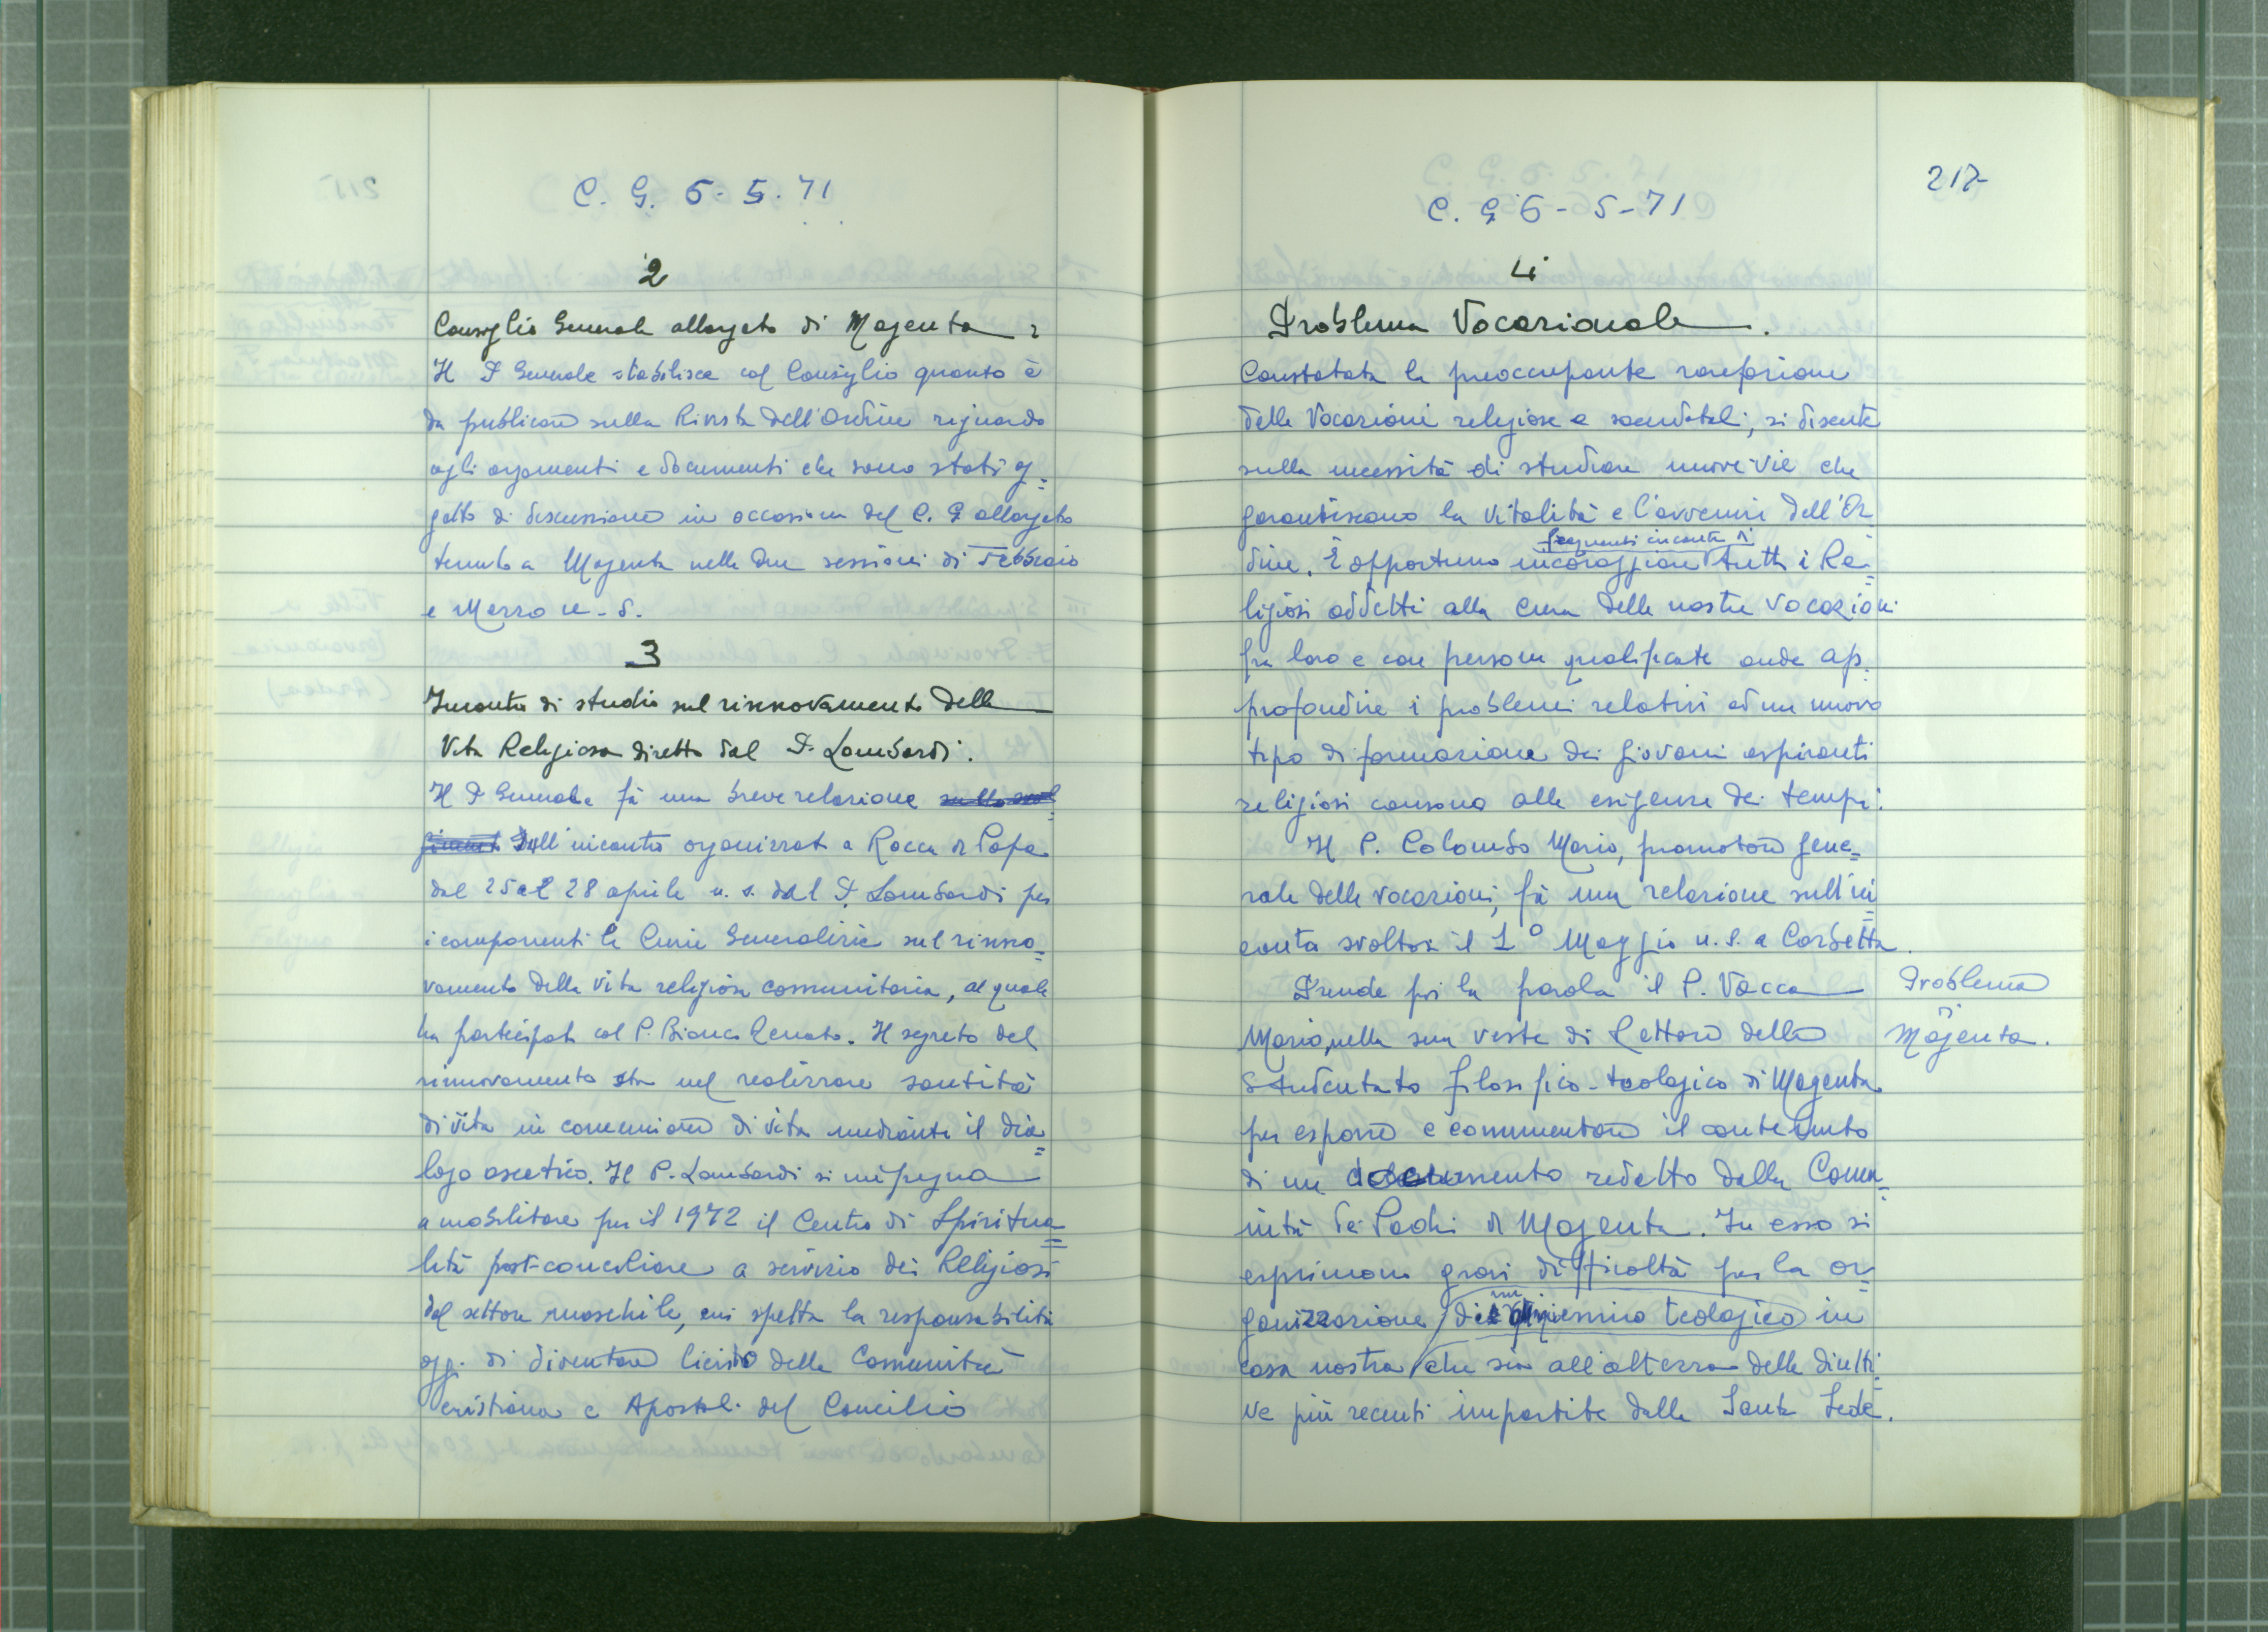 C. G. 6-5.71
2
Consiglio Generale allargato di Magenta:
Il P. Generale stabilisce col Consiglio quanto è
da publicare sulla Rivista dell'Ordine riguardo
agli argomenti e documenti che sono stati og=
getto di discussione in occasione del C. G. allargato
tenuto a Magenta nelle due sessioni di Febbraio
e Marzo u.s.
3
Incontro di studio sul rinnovamento della
Vita Religiosa diretto dal P. Lombardi.
Il P Generale fà una breve relazione sullo svol=
gimento sull'incontro organizzato a Rocca di Papa
dal 25 al 28 aprile u.s. dal P. Lombardi per
i componenti le Curie Generalizie sul rinno=
vamento della vita religiosa comunitaria, al quale
ha partecipato col P. Bianco Renato. Il segreto del
rinnovamento sta nel realizzare santità
di vita in comunione di vita mediante il dia=
logo ascetico. Il P. Lombardi si impegna
a mobilitare per il 1972 il Centro di Spiritua=
lità post-conciliare a servizio dei Religiosi
del settore maschile, cui spetta la responsabilità
oggi di diventare lievito delle Comunità
cristiana e Apostoli del Concilio
217-
C. G 6-5-71
4
Problema Vocazionale.
Constatata la preoccupante rarefazione
delle Vocazioni religiose e sacerdotali, si discute
sulla necessità di studiare nuove vie che
garantiscano la vitalità e l'avvenire dell'Or
dine. È opportuno incoraggiare frequenti incontri tutti i Re=
ligiosi addetti alla cura delle nostre vocazioni
fra loro e con persone qualificate onde ap=
profondire i problemi relativi ad un nuovo
tipo di formazione dei giovani aspiranti
religiosi consono alle esigenze dei tempi.
Il P. Colombo Mario, promotore gene=
rale delle vocazioni, fà una relazione sull'in=
contro svoltosi il 1° Maggio u.s. a Corbetta.
Prende poi la parola il P. Vacca
Mario, nella sua veste di Lettore dello
Studentato filosofico-teologico di Magenta
per esporre e commentare il contenuto
di un documento redatto dalla Comu=
nità dei Padri di Magenta. In esso si
esprimono gravi difficoltà per la or=
ganizzazione di un quinquennio teologico in
casa nostra che sia all'altezza delle diretti=
ve più recenti impartite dalla Santa Sede.
Problema
Magenta.